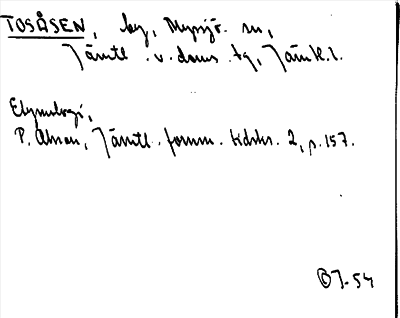 TOSÅSEN, by, Myssjö sn,
Jämtl. v. doms. tg, Jämtl. l.
Etymologi,
P. Olsson, Jämtl. fornm. tidskr. 2, p. 157.
OJ-54